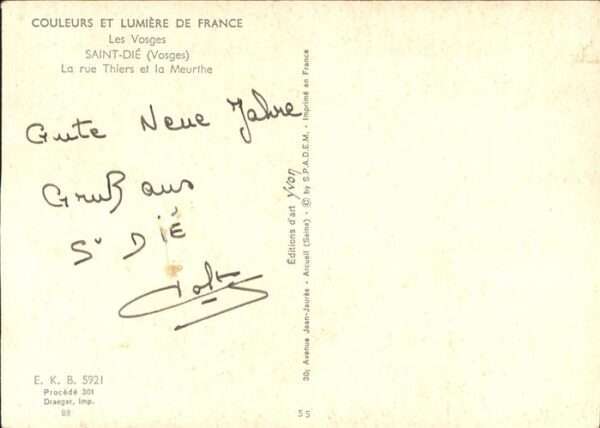 COULEURS ET LUMIÈRE DE FRANCE
Les Vosges
SAINT-DIÉ (Vosges)
La rue Thiers et la Meurthe
Gute Neue Jahre
Gruß aus
St DIÉ
E. K. B. 5921
Procédé 301
Draeger, Imp.
88
Éditions d'art Yvon - © by S.P.A.D.E.M. - Imprimé en France
30, Avenue Jean-Jaurès - Arcueil (Seine)
55